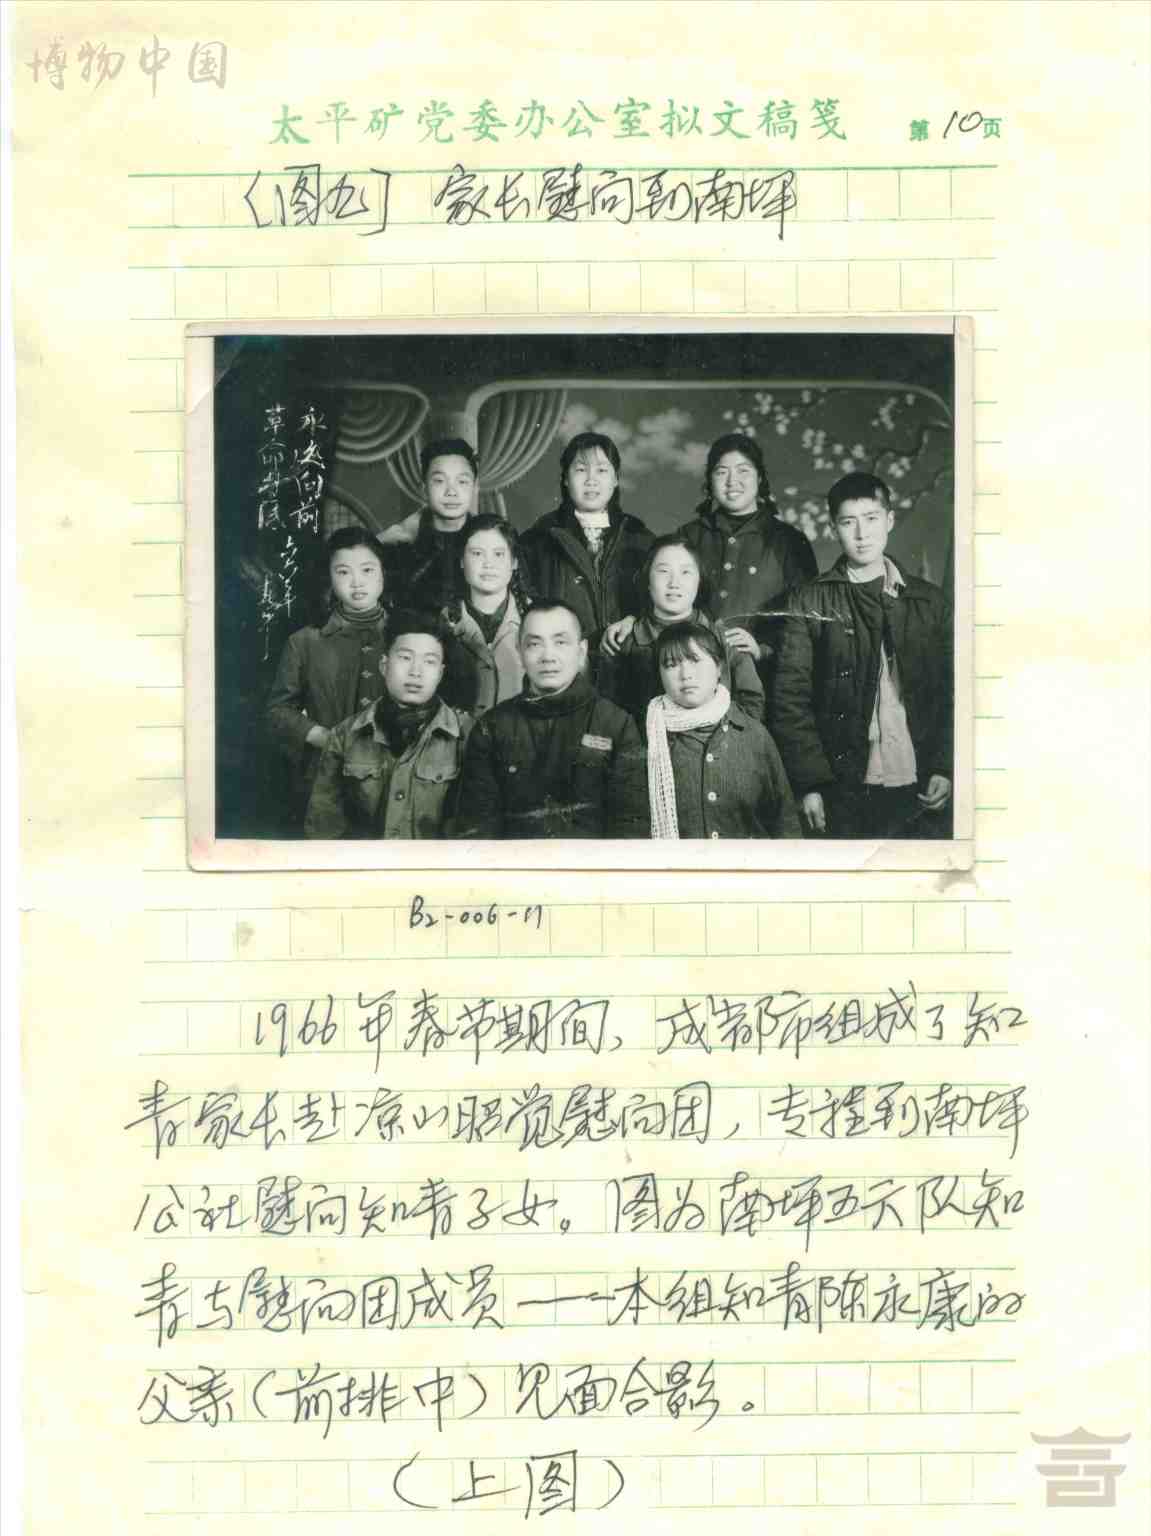 博物中国
太平矿党委办公室拟文稿笺 第10页
[图九] 家长慰问到南坪
永远向前
革命
六六年
B2-006-17
1966年春节期间，成都市组成了知
青家长赴凉山昭觉慰问团，专程到南坪
公社慰问知青子女。图为南坪五六队知
青与慰问团成员——本组知青陈永康的
父亲（前排中）见面合影。
（上图）